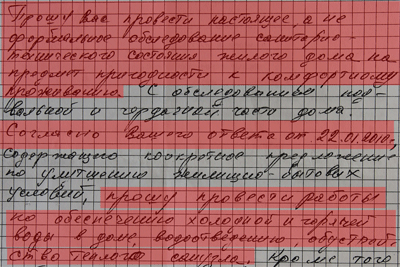 Прошу Вас провести настоящее, а не
формальное обследование санитарно-
технического состояния жилого дома на
предмет пригодности к комфортному
проживанию. С обследованием под-
вальной и чердачной части дома.
Согласно Вашего ответа от 22.01.2010г.,
содержащего конкретное предложение
по улучшению жилищно-бытовых
условий, прошу провести работы
по обеспечению холодной и горячей
воды в доме, водоотведению, обустрой-
ство теплого санузла. Кроме того